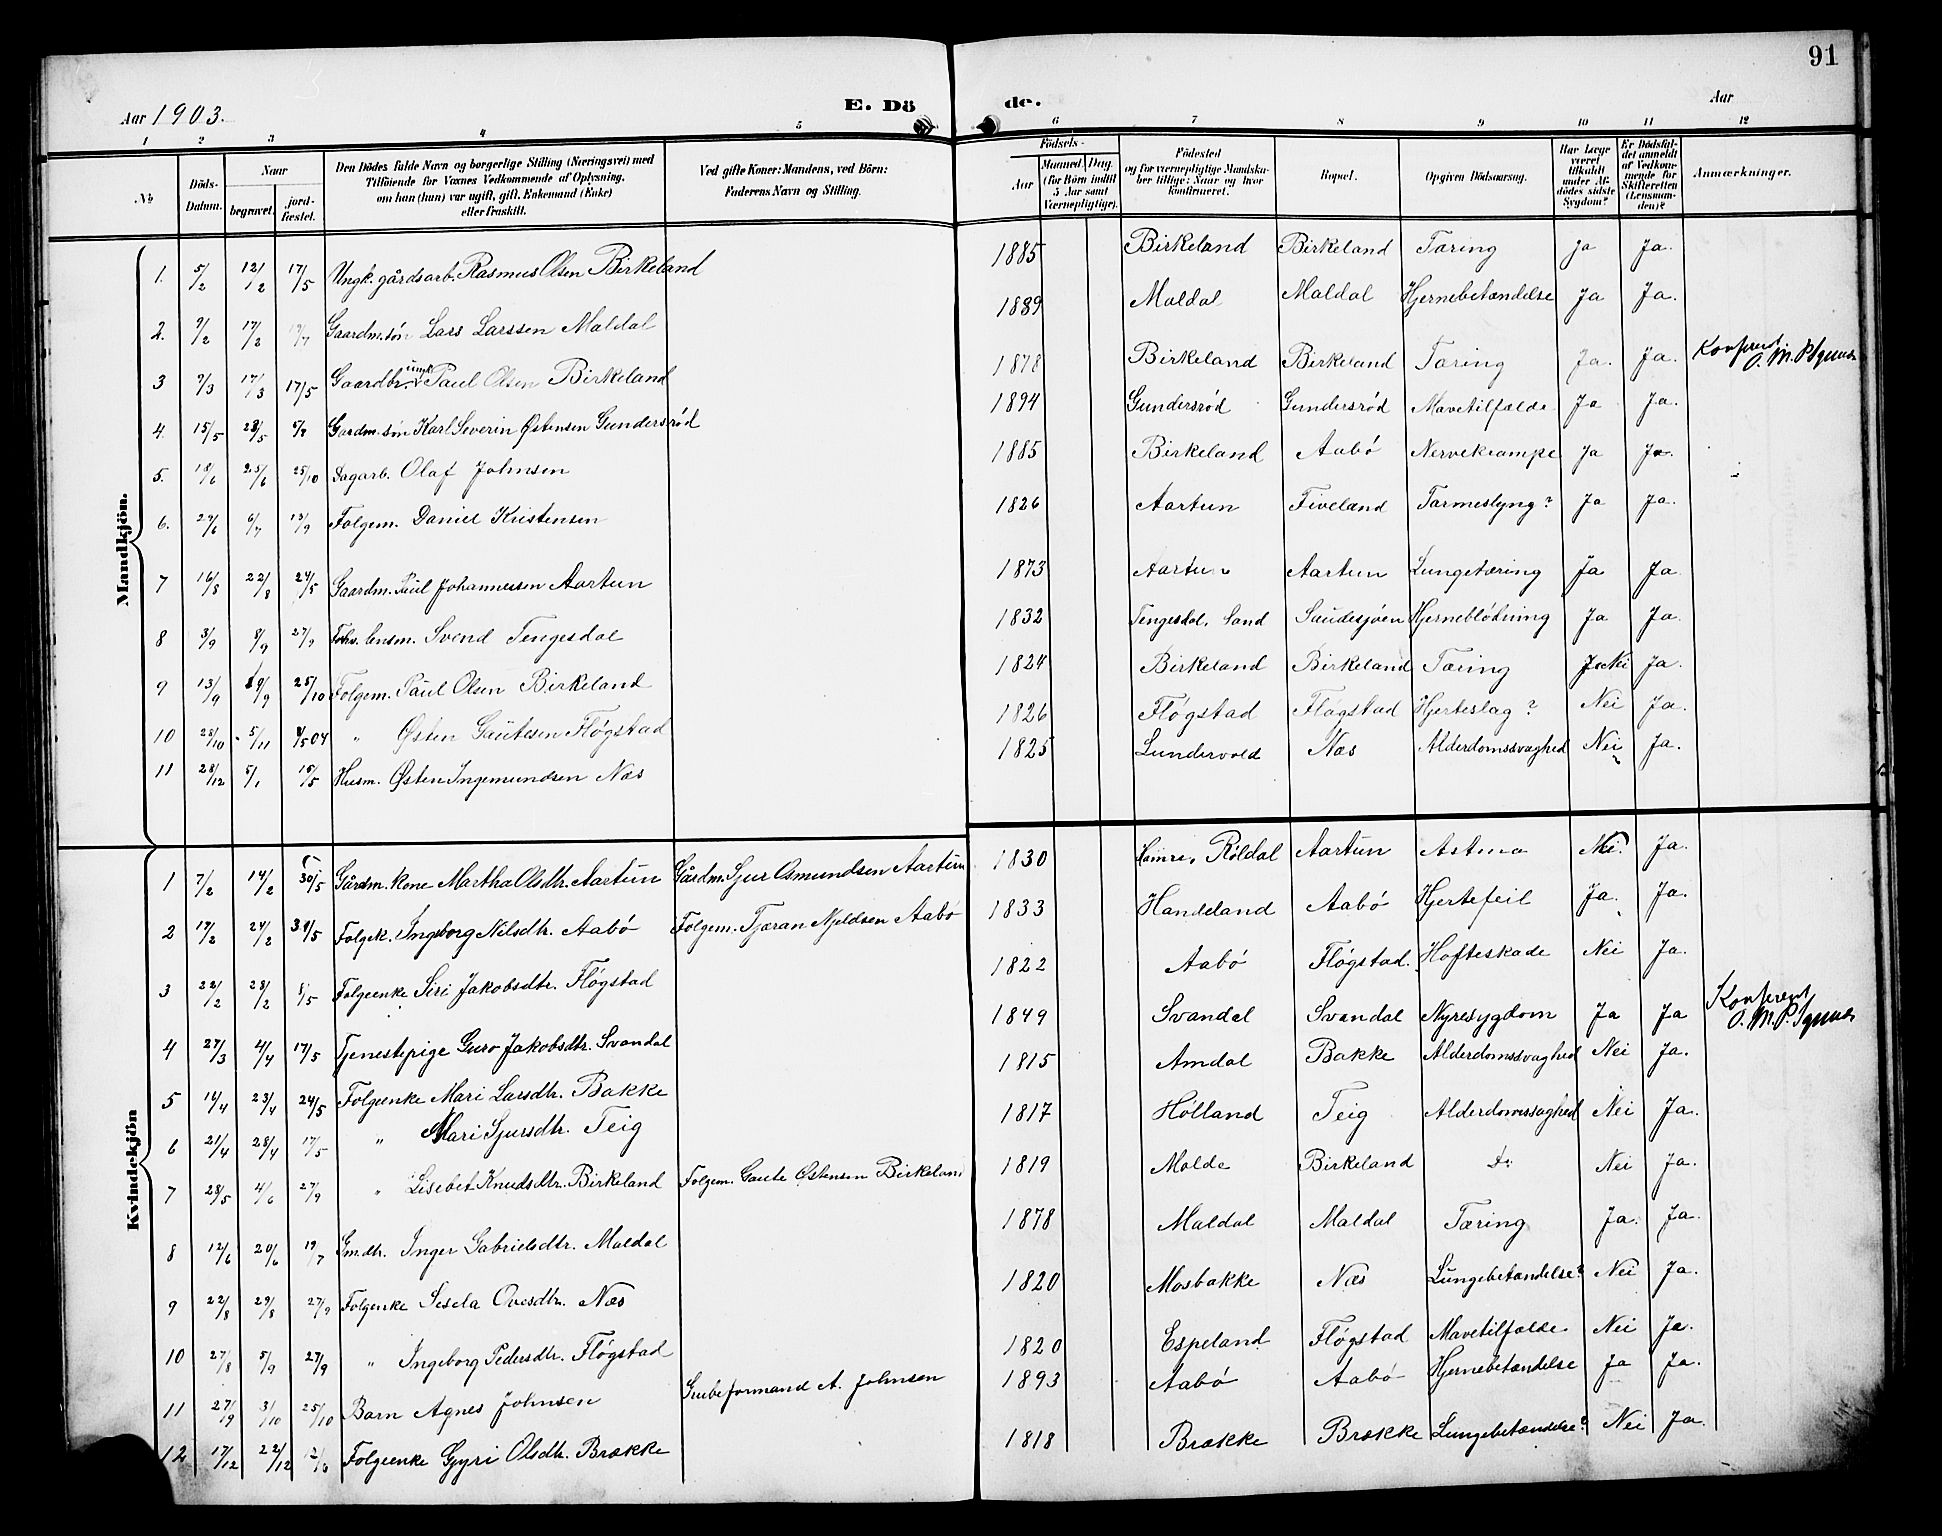 91
Aar 1903.
E. Dö de.
Aar
1 2 3 4 5 6 7 8 9 10 11 12
No
Döds-Datum.
Naar begravet. jordfæstet.
Den Dödes fulde Navn og borgerlige Stilling (Næringsvei) med Tilföiende for Voxnes Vedkommende af Oplysning, om han (hun) var ugift, gift, Enkemand (Enke) eller fraskilt.
Ved gifte Koner: Mandens, ved Börn: Faderens Navn og Stilling.
Födsels- Aar Maaned. Dag. (for Börn indtil 5 Aar samt Værnepligtige).
Födested og for værnepligtige Mandskaber tillige: Naar og hvor konfirmeret.
Bopæl.
Opgiven Dödsaarsag.
Har Læge været tilkaldt under Afdödes sidste Sygdom?
Er Dödsfaldet anmeldt af Vedkommende for Skifteretten (Lensmanden)?
Anmærkninger.
Mandkjön.
1. 5/2 12/2 17/5 Ungk. gårdsarb. Rasmus Olsen Birkeland 1885 Birkeland Birkeland Tæring Ja Ja.
2. 9/2 17/2 19/7 Gaardm.søn Lars Larssen Maldal 1889 Maldal Maldal Hjernebetændelse Ja Ja.
3 7/3 17/3 17/5 Gaardbr. ungk. Paul Olsen Birkeland 1878 Birkeland Birkeland Tæring Ja. Ja. Konfereret O. M. P.
4. 15/5 28/5 Gardm. søn Karl Severin Østensen Gundersrød 1894 Gundersrød Gundersrød Mavetilfælde Ja Ja.
5. 18/6 25/6 25/10 Dagarb. Olaf Johnsen 1885 Birkeland Aabø Nervekrampe Ja Ja.
6. 29/6 6/7 13/9 Folgem. Daniel Kristensen 1826 Aartun Fiveland Tarmeslyng? Ja Ja.
7 16/8 22/8 24/5 Gaardm. Paul Johannessen Aartun 1873 Aartun Aartun Lungetæring Ja Ja.
8 3/9 8/9 27/9 Fohv. lensm. Svend Tengesdal 1832 Tengesdal, Sand Saudesjøen Hjerneblødning Ja Ja.
9 13/9 19/9 25/10 Folgem. Paul Olsen Birkeland 1824 Birkeland Birkeland Tæring Ja Nei Ja.
10 28/10 5/11 8/5 04 " Østen Gautesen Fløgstad 1826 Fløgstad Fløgstad Hjerteslag? Nei Ja.
11 28/12 5/1 15/5 Husm. Østen Ingemundsen Næs 1825 Lundervold Næs Alderdomssvaghed Nei Ja.
Kvindekjön
1 7/2 14/2 30/5 Gårdm. kone Martha Olsdtr. Aartun Gårdm. Sjur Osmundsen Aartun 1830 Røldal Aartun Astma Nei. Ja.
2 17/2 24/2 31/5 Folgek. Ingborg Nilsdtr. Aabø Folgem. Tjæran Njeldsen Aabø 1833 Handeland Aabø Hjertefeil Ja. Ja.
3 22/2 28/2 8/5 Folgeenke Siri Jakobsdtr. Fløgstad 1822 Aabø Fløgstad. Hofteskade Nei Ja.
4 27/3 4/4 17/5 Tjenestepige Guro Jakobsdtr. Svandal 1849 Svandal Svandal Nyresygdom Ja Ja Konfereret O. M. P.
5 16/4 23/4 24/5 Folgeenke Mari Larsdtr. Bakke 1815 Amdal Bakke Alderdomssvaghed Nei Ja.
6 21/4 28/4 17/5 " Mari Sjursdtr. Teig 1817 Hølland Teig Alderdomssvaghed Nei Ja.
7 28/5 4/6 27/9 " Lisebet Knudsdtr. Birkeland Folgem. Gaute Østensen Birkeland 1819 Molde Birkeland Do Nei Ja.
8 12/6 20/6 19/7 Gm.dtr. Inger Gabrielsdtr. Maldal 1878 Maldal Maldal Tæring Ja. Ja.
9 22/8 29/8 27/9 Folgenke Sesela Ovesdtr. Næs 1820 Mosbakke Næs Lungebetændelse? Nei Ja.
10 27/8 5/9 27/9 " Ingeborg Pedersdtr. Fløgstad 1820 Espeland Fløgstad Mavetilfælde Nei Ja.
11 27/9 3/10 25/10 Barn Agnes Johnsen Grubeformand A. Johnsen 1893 Aabø Aabø Hjernebetændelse Ja Ja.
12 17/12 22/12 12/6 Folgeenke Gyri Olsdtr. Brække 1818 Brække Brække Lungebetændelse? Nei Ja.